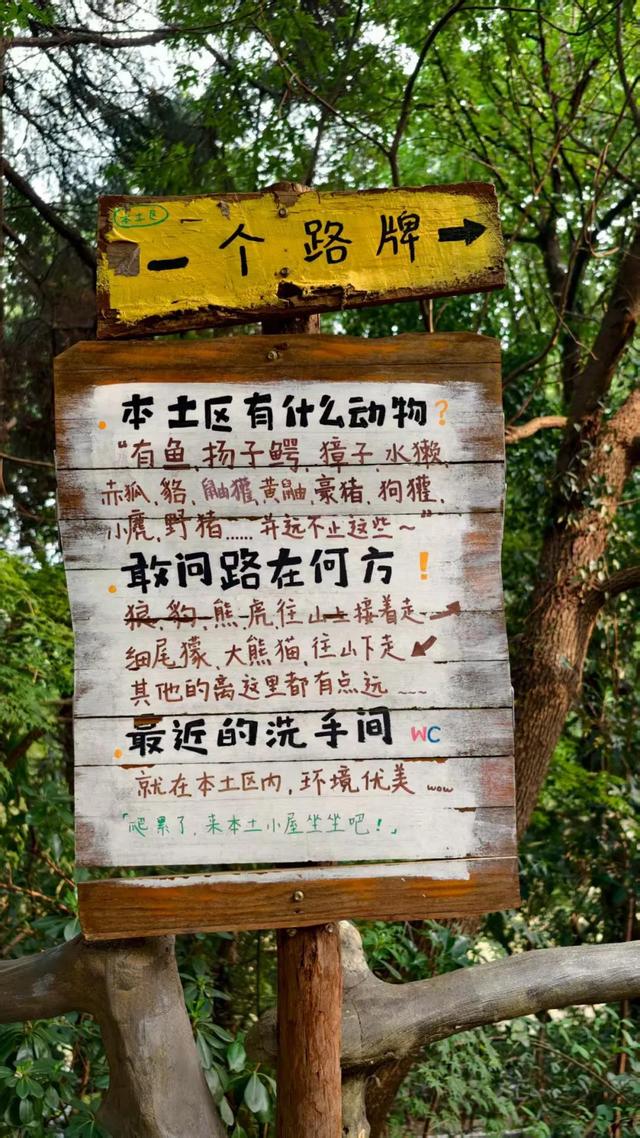 本土区
一个路牌→
·本土区有什么动物?
"有鱼、扬子鳄、獐子、水獭、
赤狐、貉、鼬獾、黄鼬、豪猪、狗獾、
小麂、野猪……并远不止这些~"
·敢问路在何方!
狼、豹、熊、虎往山上接着走→
细尾獴、大熊猫,往山下走↙
其他的离这里都有点远~~~
·最近的洗手间 WC
就在本土区内,环境优美 wow
「爬累了,来本土小屋坐坐吧!」